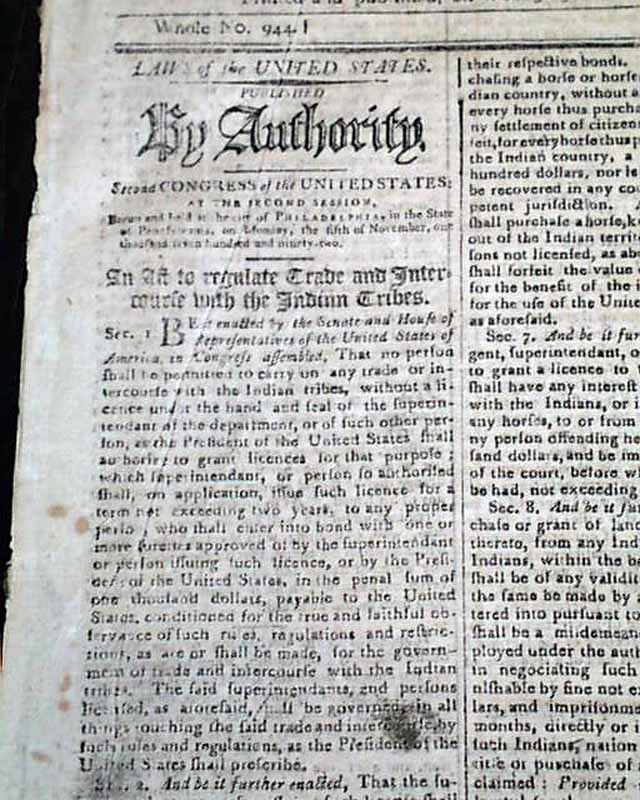 Whole No. 944.
LAWS of the UNITED STATES.
PUBLISHED
By Authority.
Second CONGRESS of the UNITED STATES:
AT THE SECOND SESSION,
Begun and held at the city of PHILADELPHIA, in the State
of Pennsylvania, on Monday, the fifth of November, one
thousand seven hundred and ninety-two.
An Act to regulate Trade and Inter-
course with the Indian Tribes.
Sec. 1 BE it enacted by the Senate and House of
Representatives of the United States of
America, in Congress assembled, That no person
shall be permitted to carry on any trade or in-
tercourse with the Indian tribes, without a li-
cence under the hand and seal of the superin-
tendant of the department, or of such other per-
son, as the President of the United States shall
authorise to grant licences for that purpose;
which superintendant, or person so authorised
shall, on application, issue such licence for a
term not exceeding two years, to any proper
person, who shall enter into bond with one or
more sureties approved of by the superintendant
or person issuing such licence, or by the Presi-
dent of the United States, in the penal sum of
one thousand dollars, payable to the United
States, conditioned for the true and faithful ob-
servance of such rules, regulations and restric-
tions, as are or shall be made, for the govern-
ment of trade and intercourse with the Indian
tribes. The said superintendants, and persons
licensed, as aforesaid, shall be governed, in all
things touching the said trade and intercourse, by
such rules and regulations, as the President of the
United States shall prescribe.
Sec. 2. And be it further enacted, That the su-
their respective bonds.
chasing a horse or horse
dian country, without a
every horse thus purcha
ny settlement of citizen
feit, for every horse thus p
the Indian country, a
hundred dollars, nor le
be recovered in any co
petent jurisdiction.
shall purchase a horse, k
out of the Indian territo
sons not licensed, as abo
shall forfeit the value
for the benefit of the i
for the use of the United
as aforesaid.
Sec. 7. And be it fur
gent, superintendant, o
to grant a licence to t
shall have any interest
with the Indians, or i
any horses, to or from
ny person offending he
sand dollars, and be im
of the court, before w
be had, not exceeding
Sec. 8. And be it fur
chase or grant of land
thereto, from any Ind
Indians, within the bo
shall be of any validit
the same be made by a
tered into pursuant to
shall be a misdemean
ployed under the auth
in negociating such
nishable by fine not ex
lars, and imprisonme
months, directly or i
such Indians, nation
title or purchase of
claimed: Provided